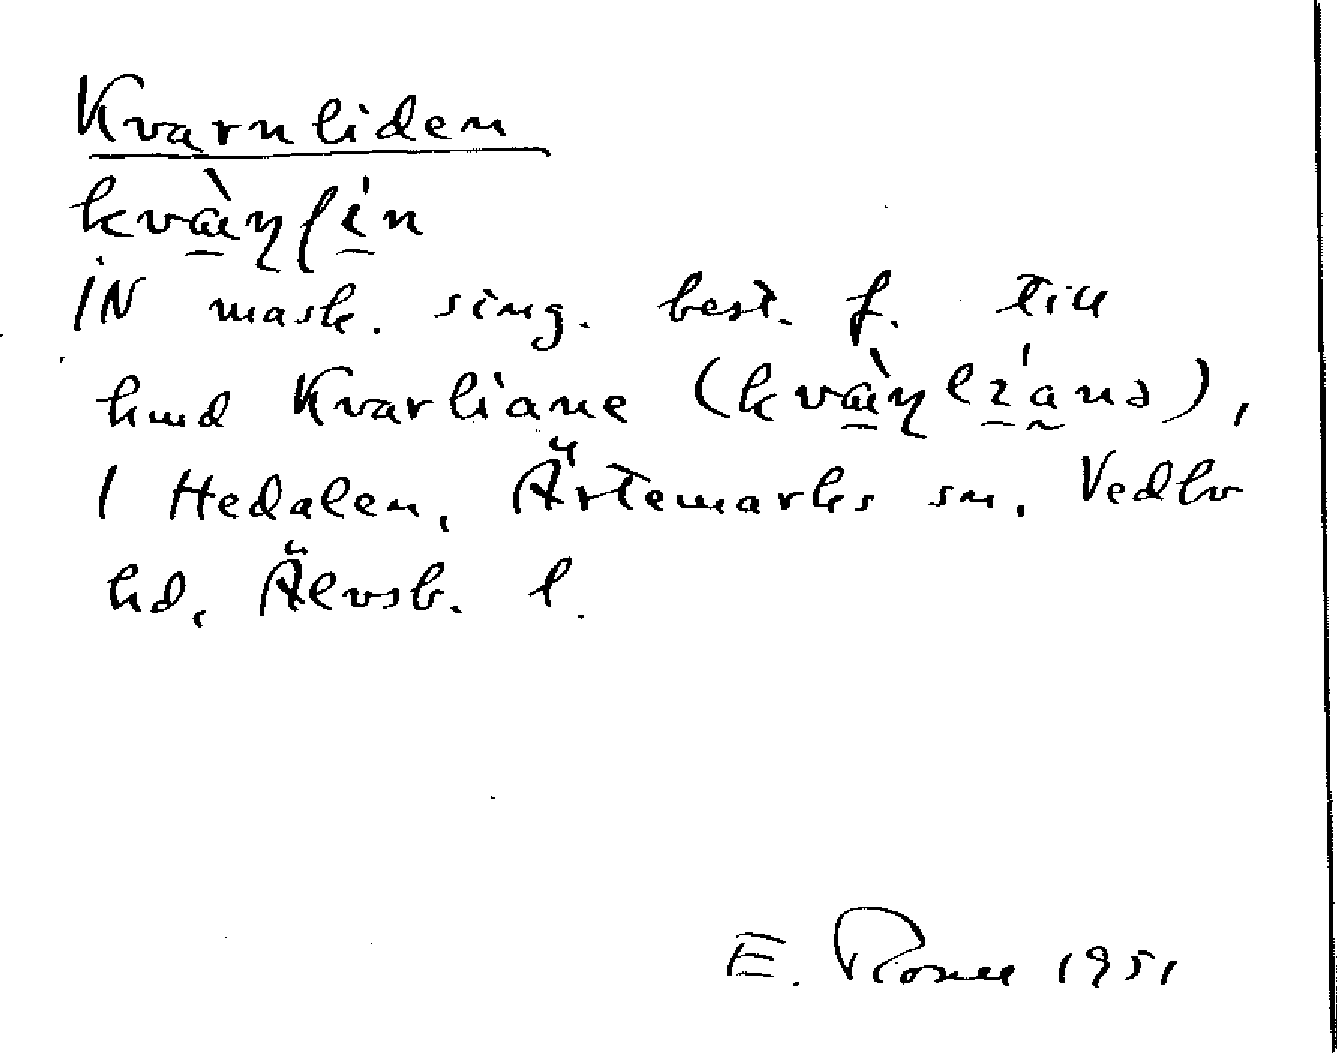 Kvarnliden
kvàɳlín
IN mask. sing. best. f. till
hmd Kvarliane (kvàɳlíanə),
I Hedalen, Ärtemarks sn, Vedbo
hd, Älvsb. l.
E. 1951